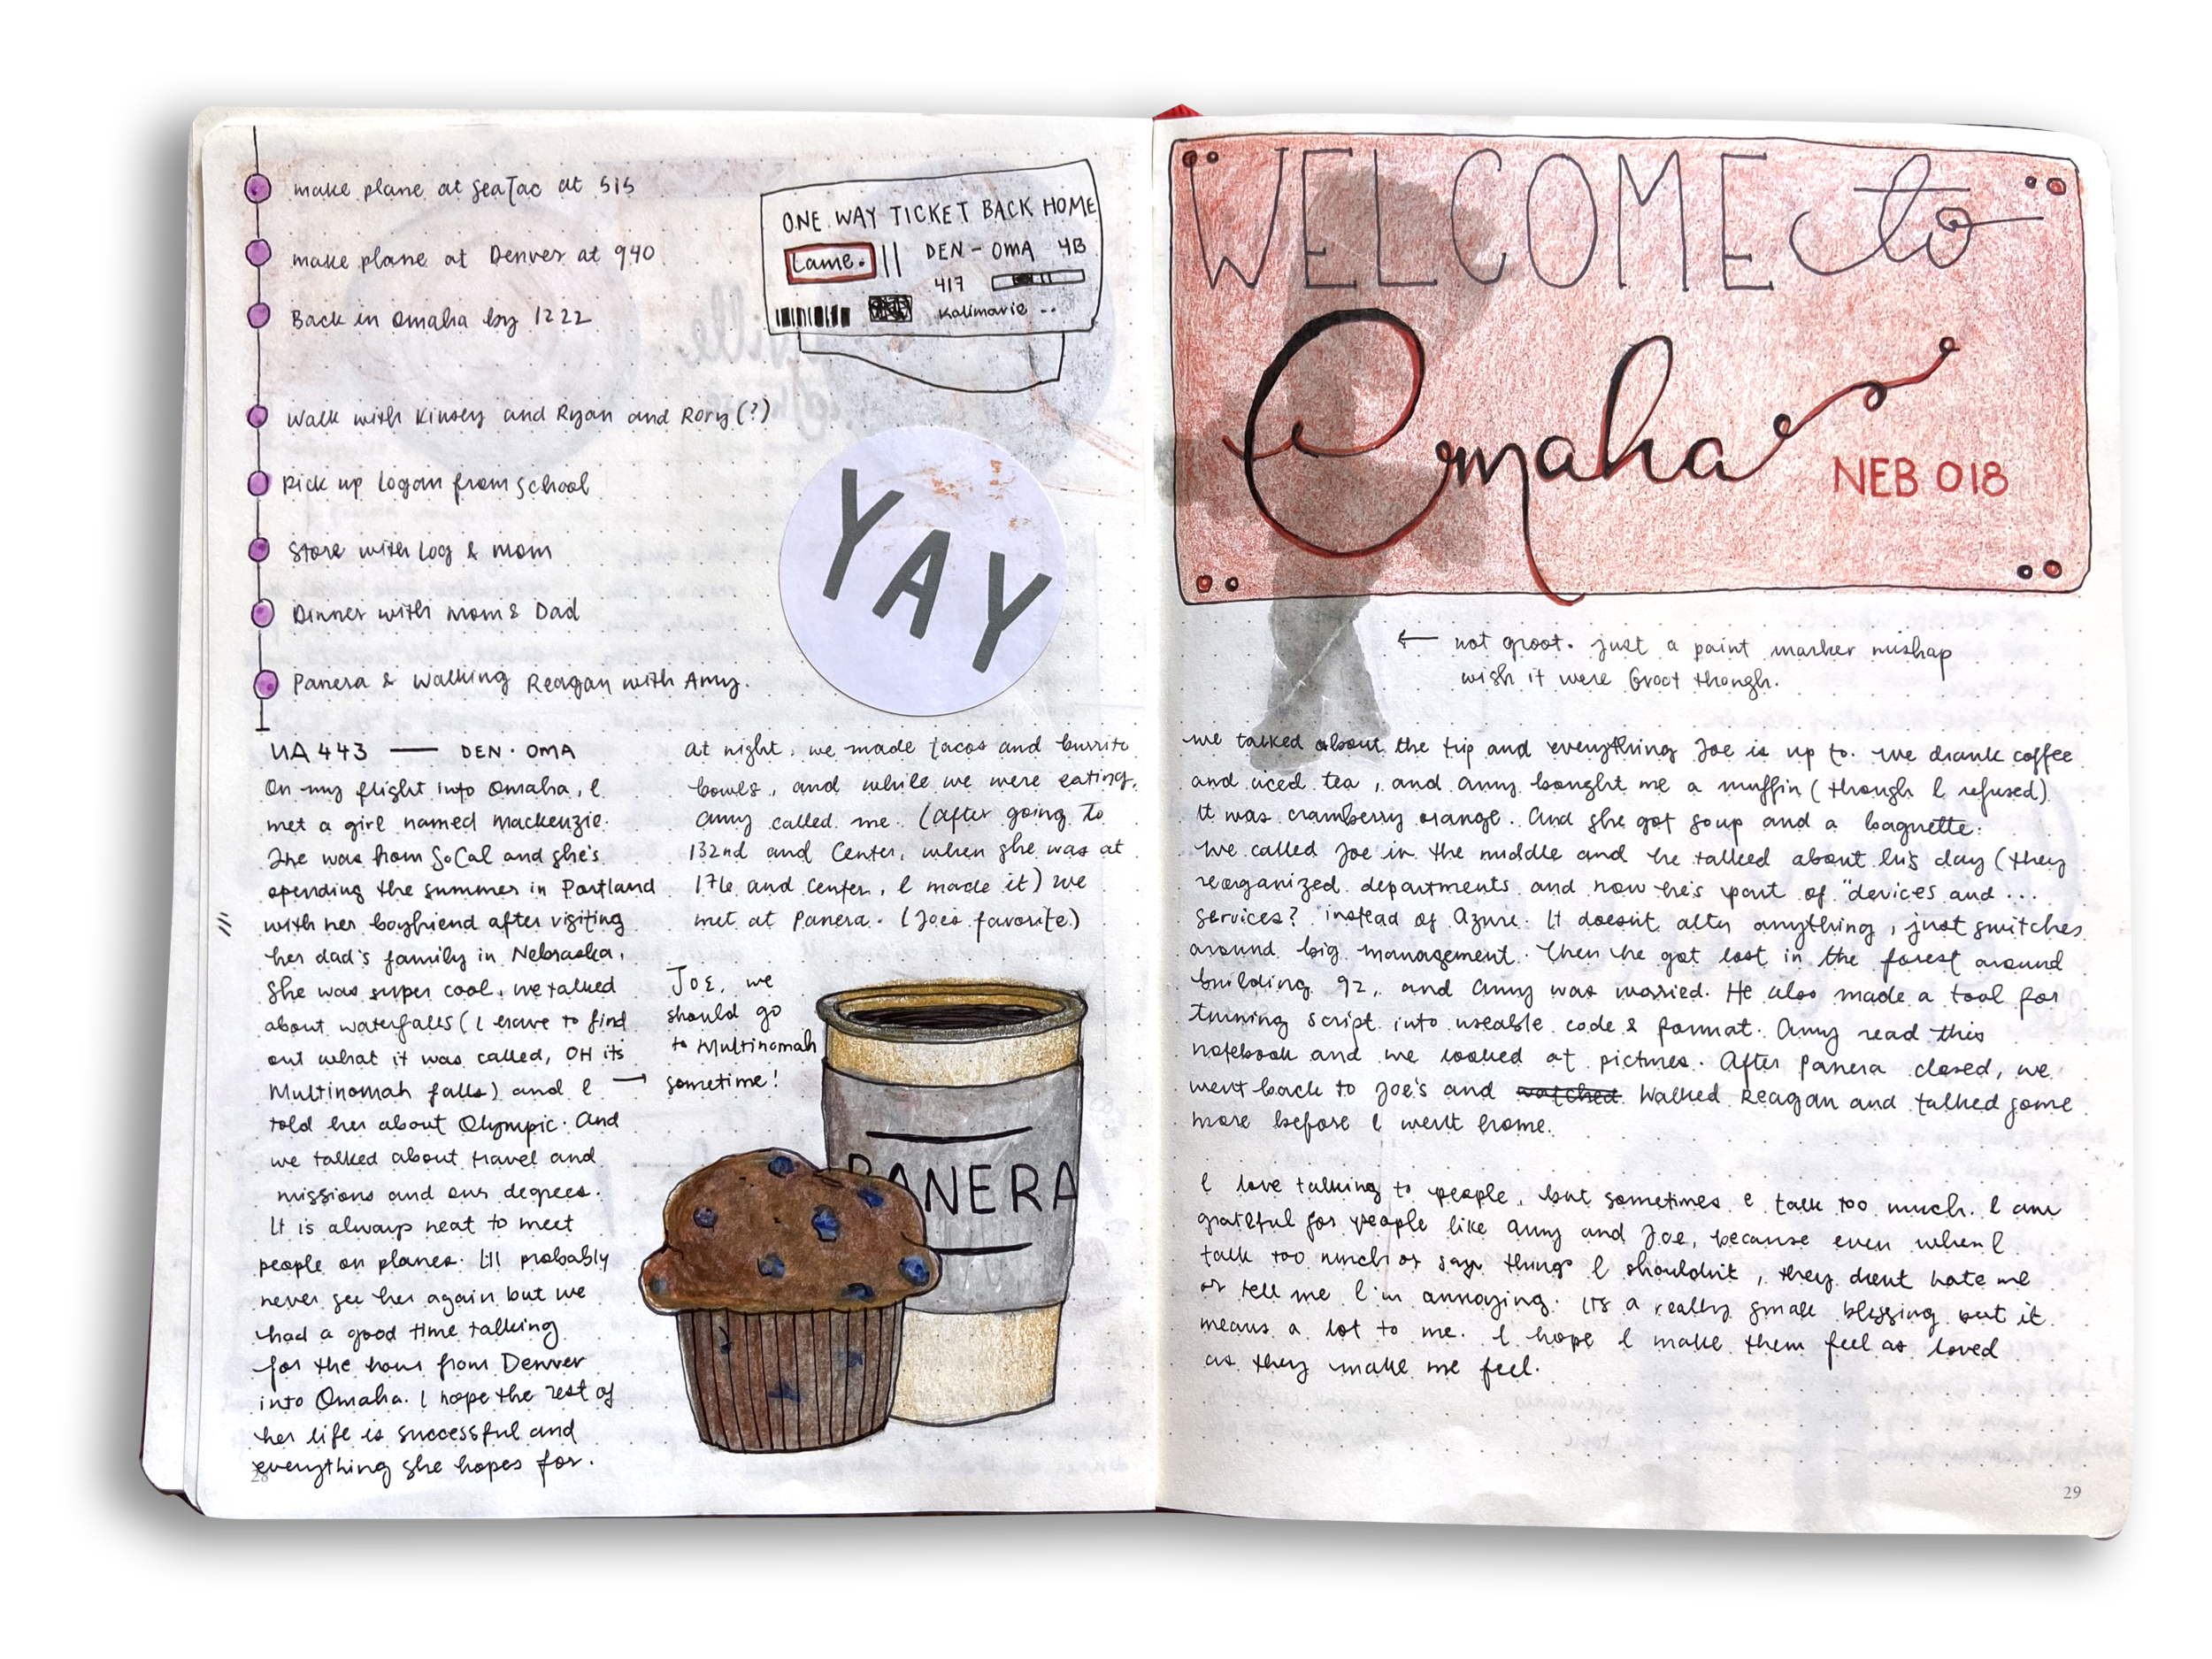 make plane at SeaTac at 515
make plane at Denver at 940
Back in Omaha by 1222
Walk with Kinsey and Ryan and Rory (?)
Pick up Logan from school
Store with Log & Mom
Dinner with Mom & Dad
Panera & Walking Reagan with Amy.
ONE WAY TICKET BACK HOME
Lame.
DEN - OMA 4B
417
Kalimarie --
YAY
UA 443 — DEN · OMA
On my flight into Omaha, I
met a girl named Mackenzie.
She was from SoCal and she's
spending the summer in Portland
with her boyfriend after visiting
her dad's family in Nebraska.
She was super cool. We talked
about waterfalls (I have to find
out what it was called, OH its
Multinomah falls) and I →
told her about Olympic. And
we talked about travel and
missions and our degrees.
It is always neat to meet
people on planes. I'll probably
never see her again but we
had a good time talking
for the hour from Denver
into Omaha. I hope the rest of
her life is successful and
everything she hopes for.
28
At night, we made tacos and burrito
bowls, and while we were eating,
Amy called me. (After going to
132nd and Center, when she was at
176 and Center, I made it) we
met at Panera. (Joe's favorite)
JOE, we
should go
to Multinomah
sometime!
PANERA
WELCOME to
Omaha
NEB 018
← not groot. just a paint marker mishap
wish it were Groot though.
we talked about the trip and everything Joe is up to. We drank coffee
and iced tea, and Amy bought me a muffin (though I refused)
It was cramberry orange. And she got soup and a baguette.
We called Joe in the middle and he talked about his day (they
reorganized departments and now he's part of "devices and...
services? instead of Azure. It doesn't alter anything, just switches
around big management. Then he got lost in the forest around
building 92, and Amy was worried. He also made a tool for
turning script into useable code & format. Amy read this
notebook and we looked at pictures. After Panera closed, we
went back to Joe's and watched Walked Reagan and talked some
more before I went home.
I love talking to people, but sometimes I talk too much. I am
grateful for people like Amy and Joe, because even when I
talk too much or say things I shouldn't, they dont hate me
or tell me I'm annoying. Its a really small blessing but it
means a lot to me. I hope I make them feel as loved
as they make me feel.
29